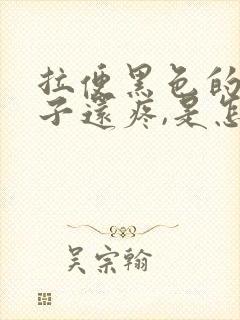 拉便黑色的
子還疼,是怎
吳宗翰